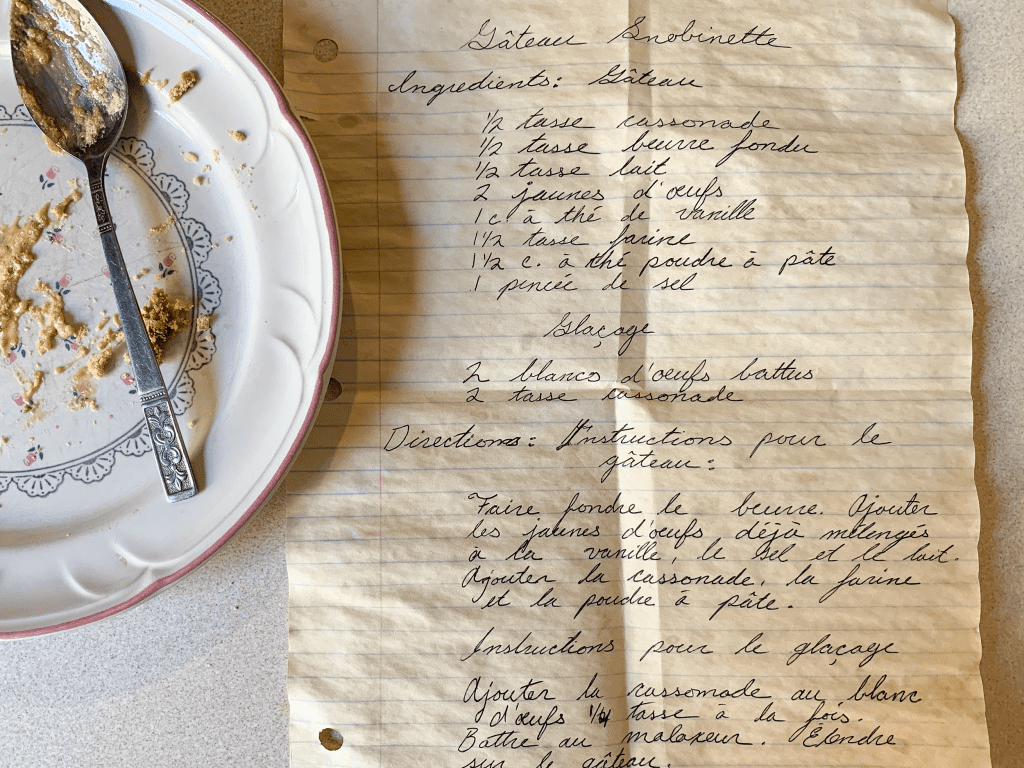 Gâteau Snobinette
Ingredients: Gâteau
1/2 tasse cassonade
1/2 tasse beurre fondu
1/2 tasse lait
2 jaunes d'œufs
1 c. à thé de vanille
1 1/2 tasse farine
1 1/2 c. à thé poudre à pâte
1 pincée de sel
Glaçage
2 blancs d'œufs battus
2 tasse cassonade
Directions: Instructions pour le
gâteau:
Faire fondre le beurre. Ajouter
les jaunes d'œufs déjà mélengés
à la vanille, le sel et le lait.
Ajouter la cassonade, la farine
et la poudre à pâte.
Instructions pour le glaçage
Ajouter la cassomade au blanc
d'œufs 1/4 tasse à la fois.
Battre au malaxeur. Étendre
sur le gâteau.